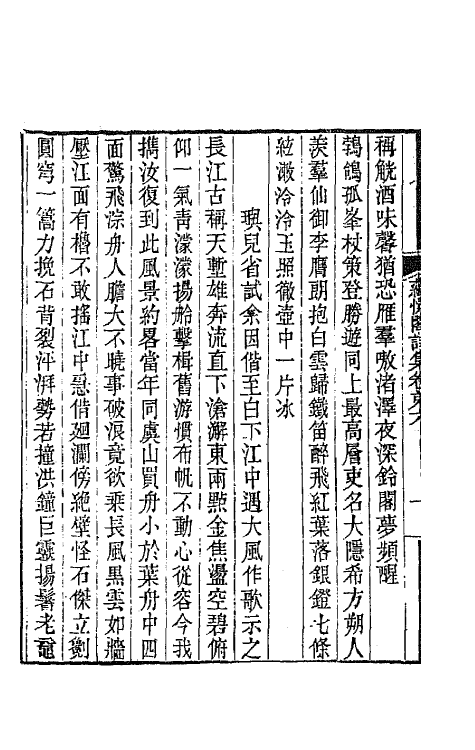 稱觥酒味馨猶恐雁羣嗷渚澤夜深鈴閣夢頻醒
鵓鴿孤峯杖策登勝遊同上最高層吏名大隱希方朔人
羨羣仙御李膺朗抱白雲歸鐵笛醉飛紅葉落銀鐙七條
絃澈泠泠玉照徹壺中一片冰
璵兒省試余因偕至白下江中遇大風作歌示之
長江古稱天塹雄奔流直下滄澥東兩點金焦盪空碧俯
仰一氣靑濛濛揚舲擊楫舊游慣布帆不動心從容今我
攜汝復到此風景約畧當年同虞山買舟小於葉舟中四
面驚飛淙舟人膽大不曉事破浪竟欲乘長風黑雲如牆
壓江面有櫓不敢搖江中急借廻瀾傍絶壁怪石傑立劉
圓穹一篙力挽石背裂泙湃勢若撞洪鐘巨靈揚鬐老黿